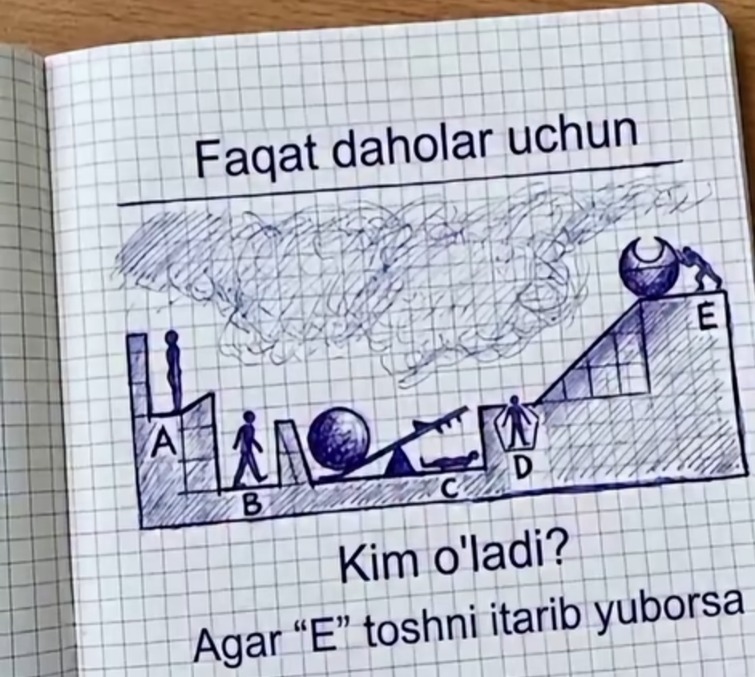 Faqat daholar uchun
E
A
D
C
B
Kim o'ladi?
Agar “E” toshni itarib yuborsa